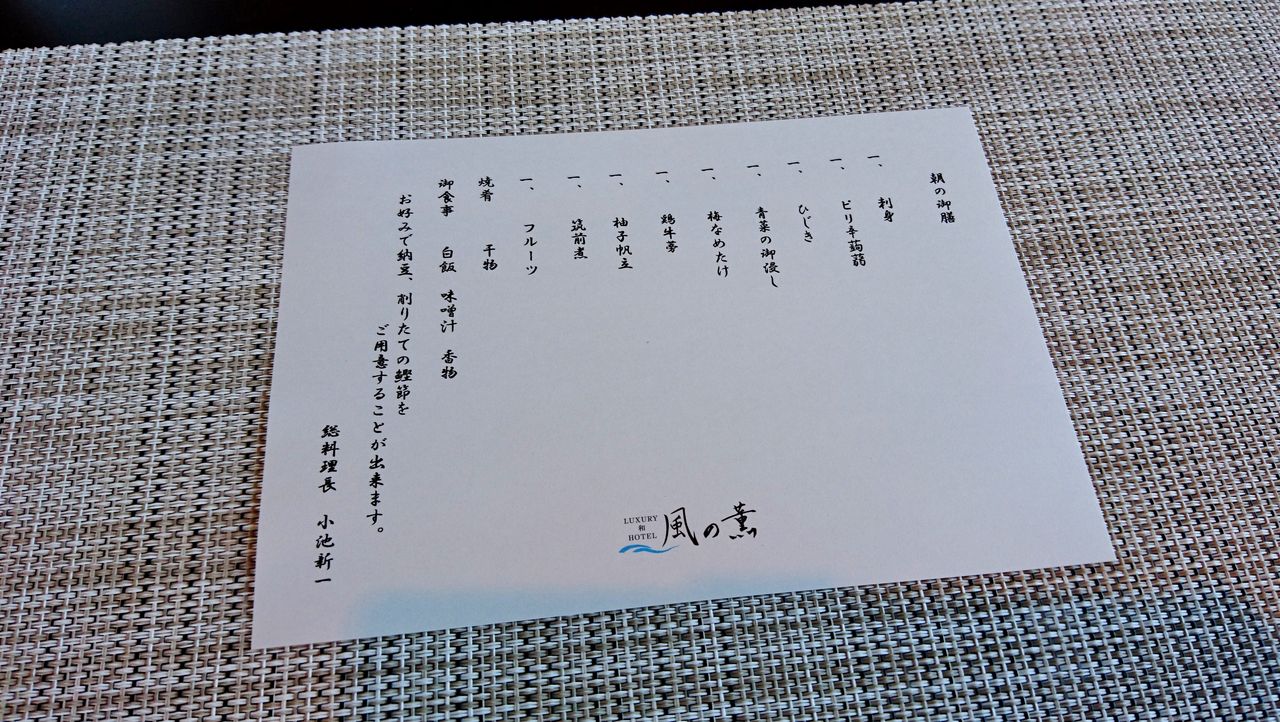 朝の御膳
一、 刺身
一、 ピリ辛蒟蒻
一、 ひじき
一、 青菜の御浸し
一、 梅なめたけ
一、 鶏牛蒡
一、 柚子帆立
一、 筑前煮
一、 フルーツ
焼肴 干物
御食事 白飯 味噌汁 香物
お好みで納豆、削りたての鰹節を
ご用意することが出来ます。
総料理長 小池新一
LUXURY
和
HOTEL
風の薫